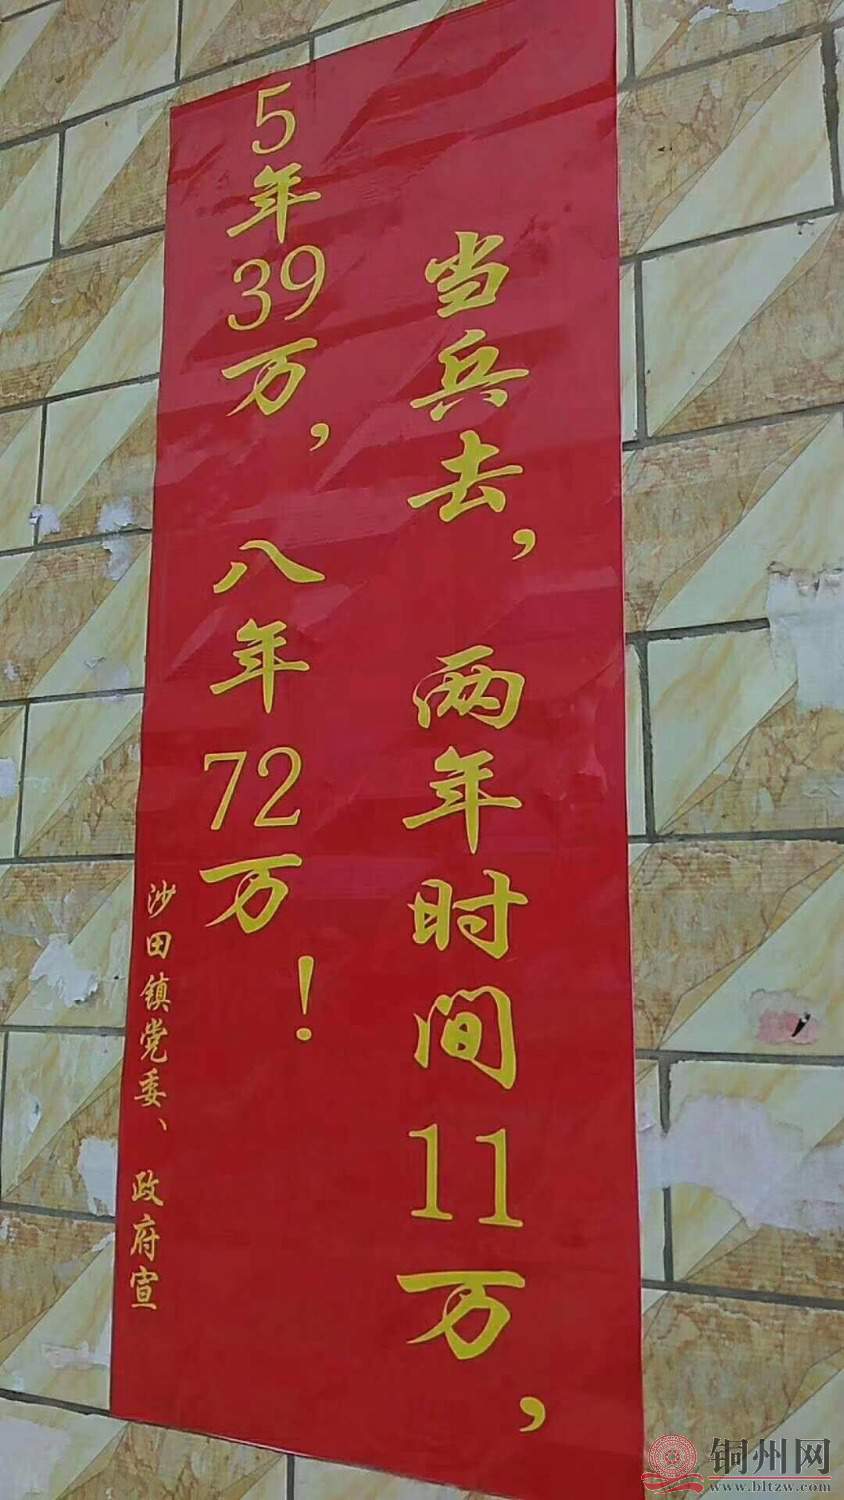 当兵去，两年时间11万，
5年39万，八年72万！
沙田镇党委、政府宣
铜州网
www.bltzw.com